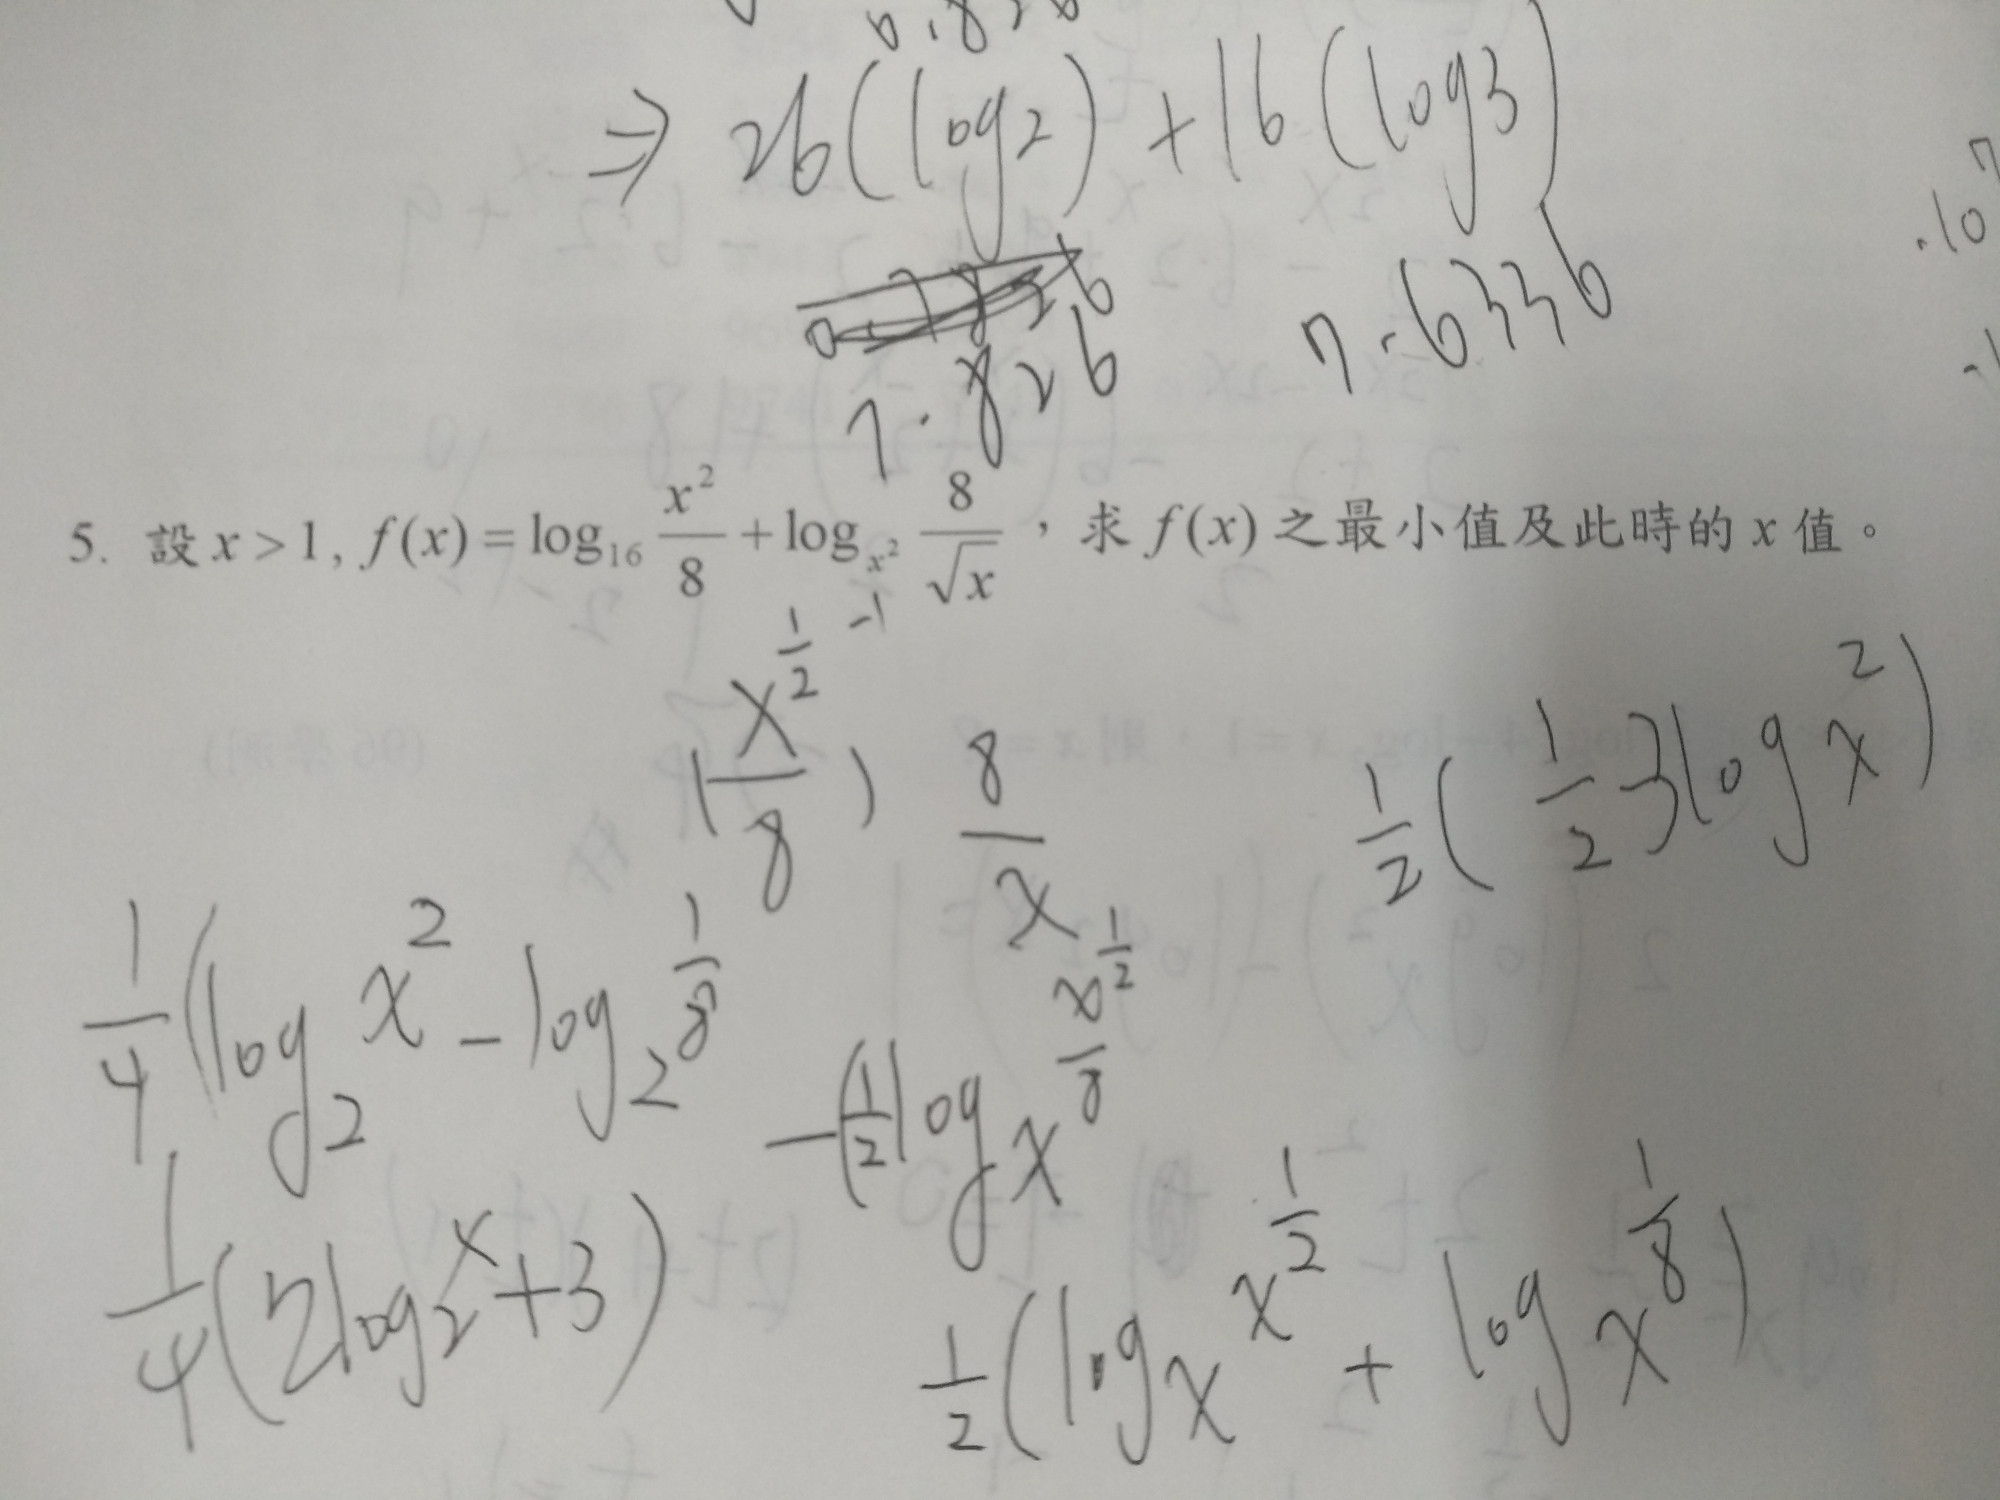 ⇒ 26(log2) + 16(log3)
7.826 7.6336
.10⁷
5. 設 x > 1, f(x) = log₁₆ x²/8 + log_{x²} 8/√x，求 f(x) 之最小值及此時的 x 值。
(x^{1/2}/8)^{-1} 8/x^{1/2} 1/2(1/2 3log x²)
1/4(log₂x² - log₂ 1/8) -(1/2 log_x x^{1/2}/8
1/4(2log₂x + 3) 1/2(log_x x^{1/2} + log_x 1/8)